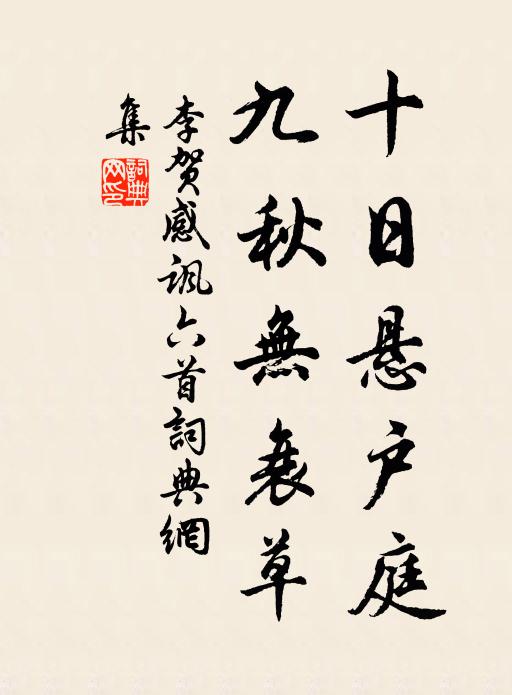 十日悬户庭
九秋無衰草
李贺感讽六首詞典網
集
詞典網印